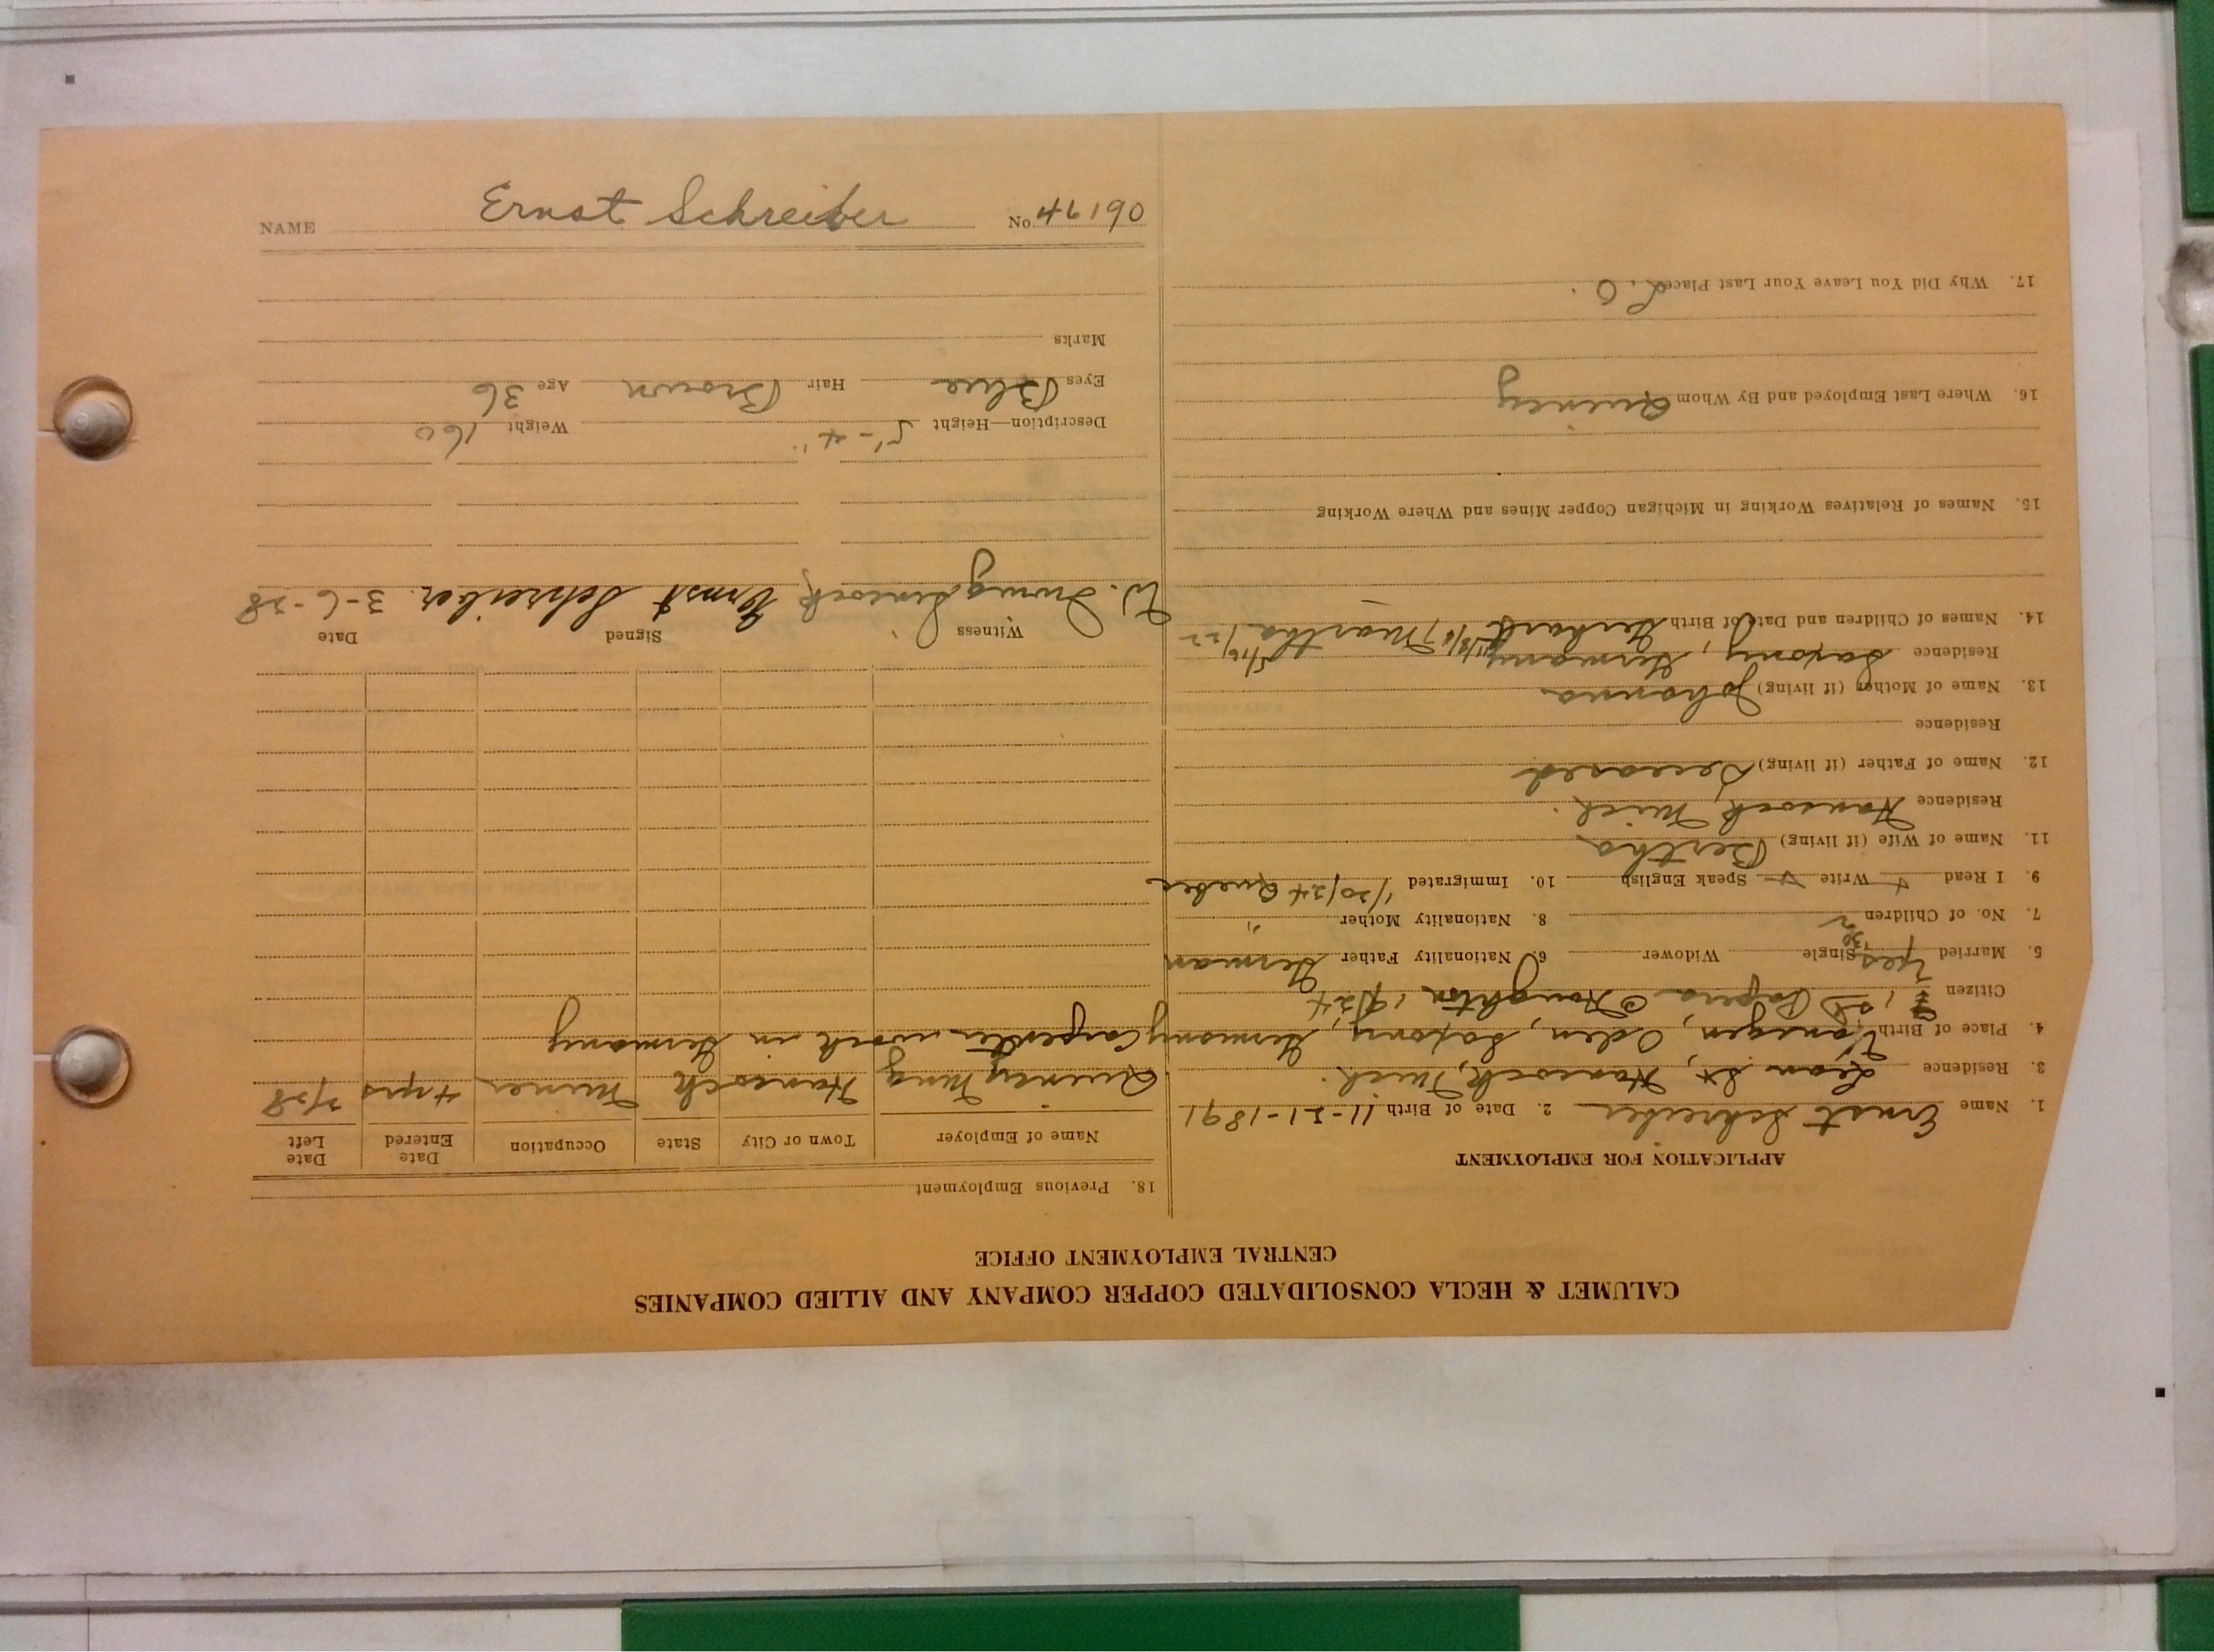 CALUMET & HECLA CONSOLIDATED COPPER COMPANY AND ALLIED COMPANIES
CENTRAL EMPLOYMENT OFFICE
APPLICATION FOR EMPLOYMENT
1. Name Ernst Schreiber 2. Date of Birth 11-21-1891
3. Residence St, Hancock, Mich.
4. Place of Birth Oden, Saxony, Germany
Citizen 1st Papers Houghton, 1924
5. Married yes Single Widower 6. Nationality Father German
7. No. of Children 2 8. Nationality Mother "
9. I Read Write Speak English 10. Immigrated 1/20/24 Quebec
11. Name of Wife (if living) Bertha
Residence Hancock, Mich.
12. Name of Father (if living) Deceased
Residence
13. Name of Mother (if living) Johanna
Residence Saxony, Germany
14. Names of Children and Date of Birth Gerhardt Martha
15. Names of Relatives Working in Michigan Copper Mines and Where Working
16. Where Last Employed and By Whom Quincy
17. Why Did You Leave Your Last Place L.O.
18. Previous Employment
Name of Employer Town or City State Occupation Date Entered Date Left
Quincy Mng Hancock Miner 4 yrs 2/28
Carpenter work in Germany
Witness Signed Date
W. Irving Ernst Schreiber 3-6-28
Description—Height 5'-4" Weight 160
Eyes Blue Hair Brown Age 36
Marks
NAME Ernst Schreiber No. 46190